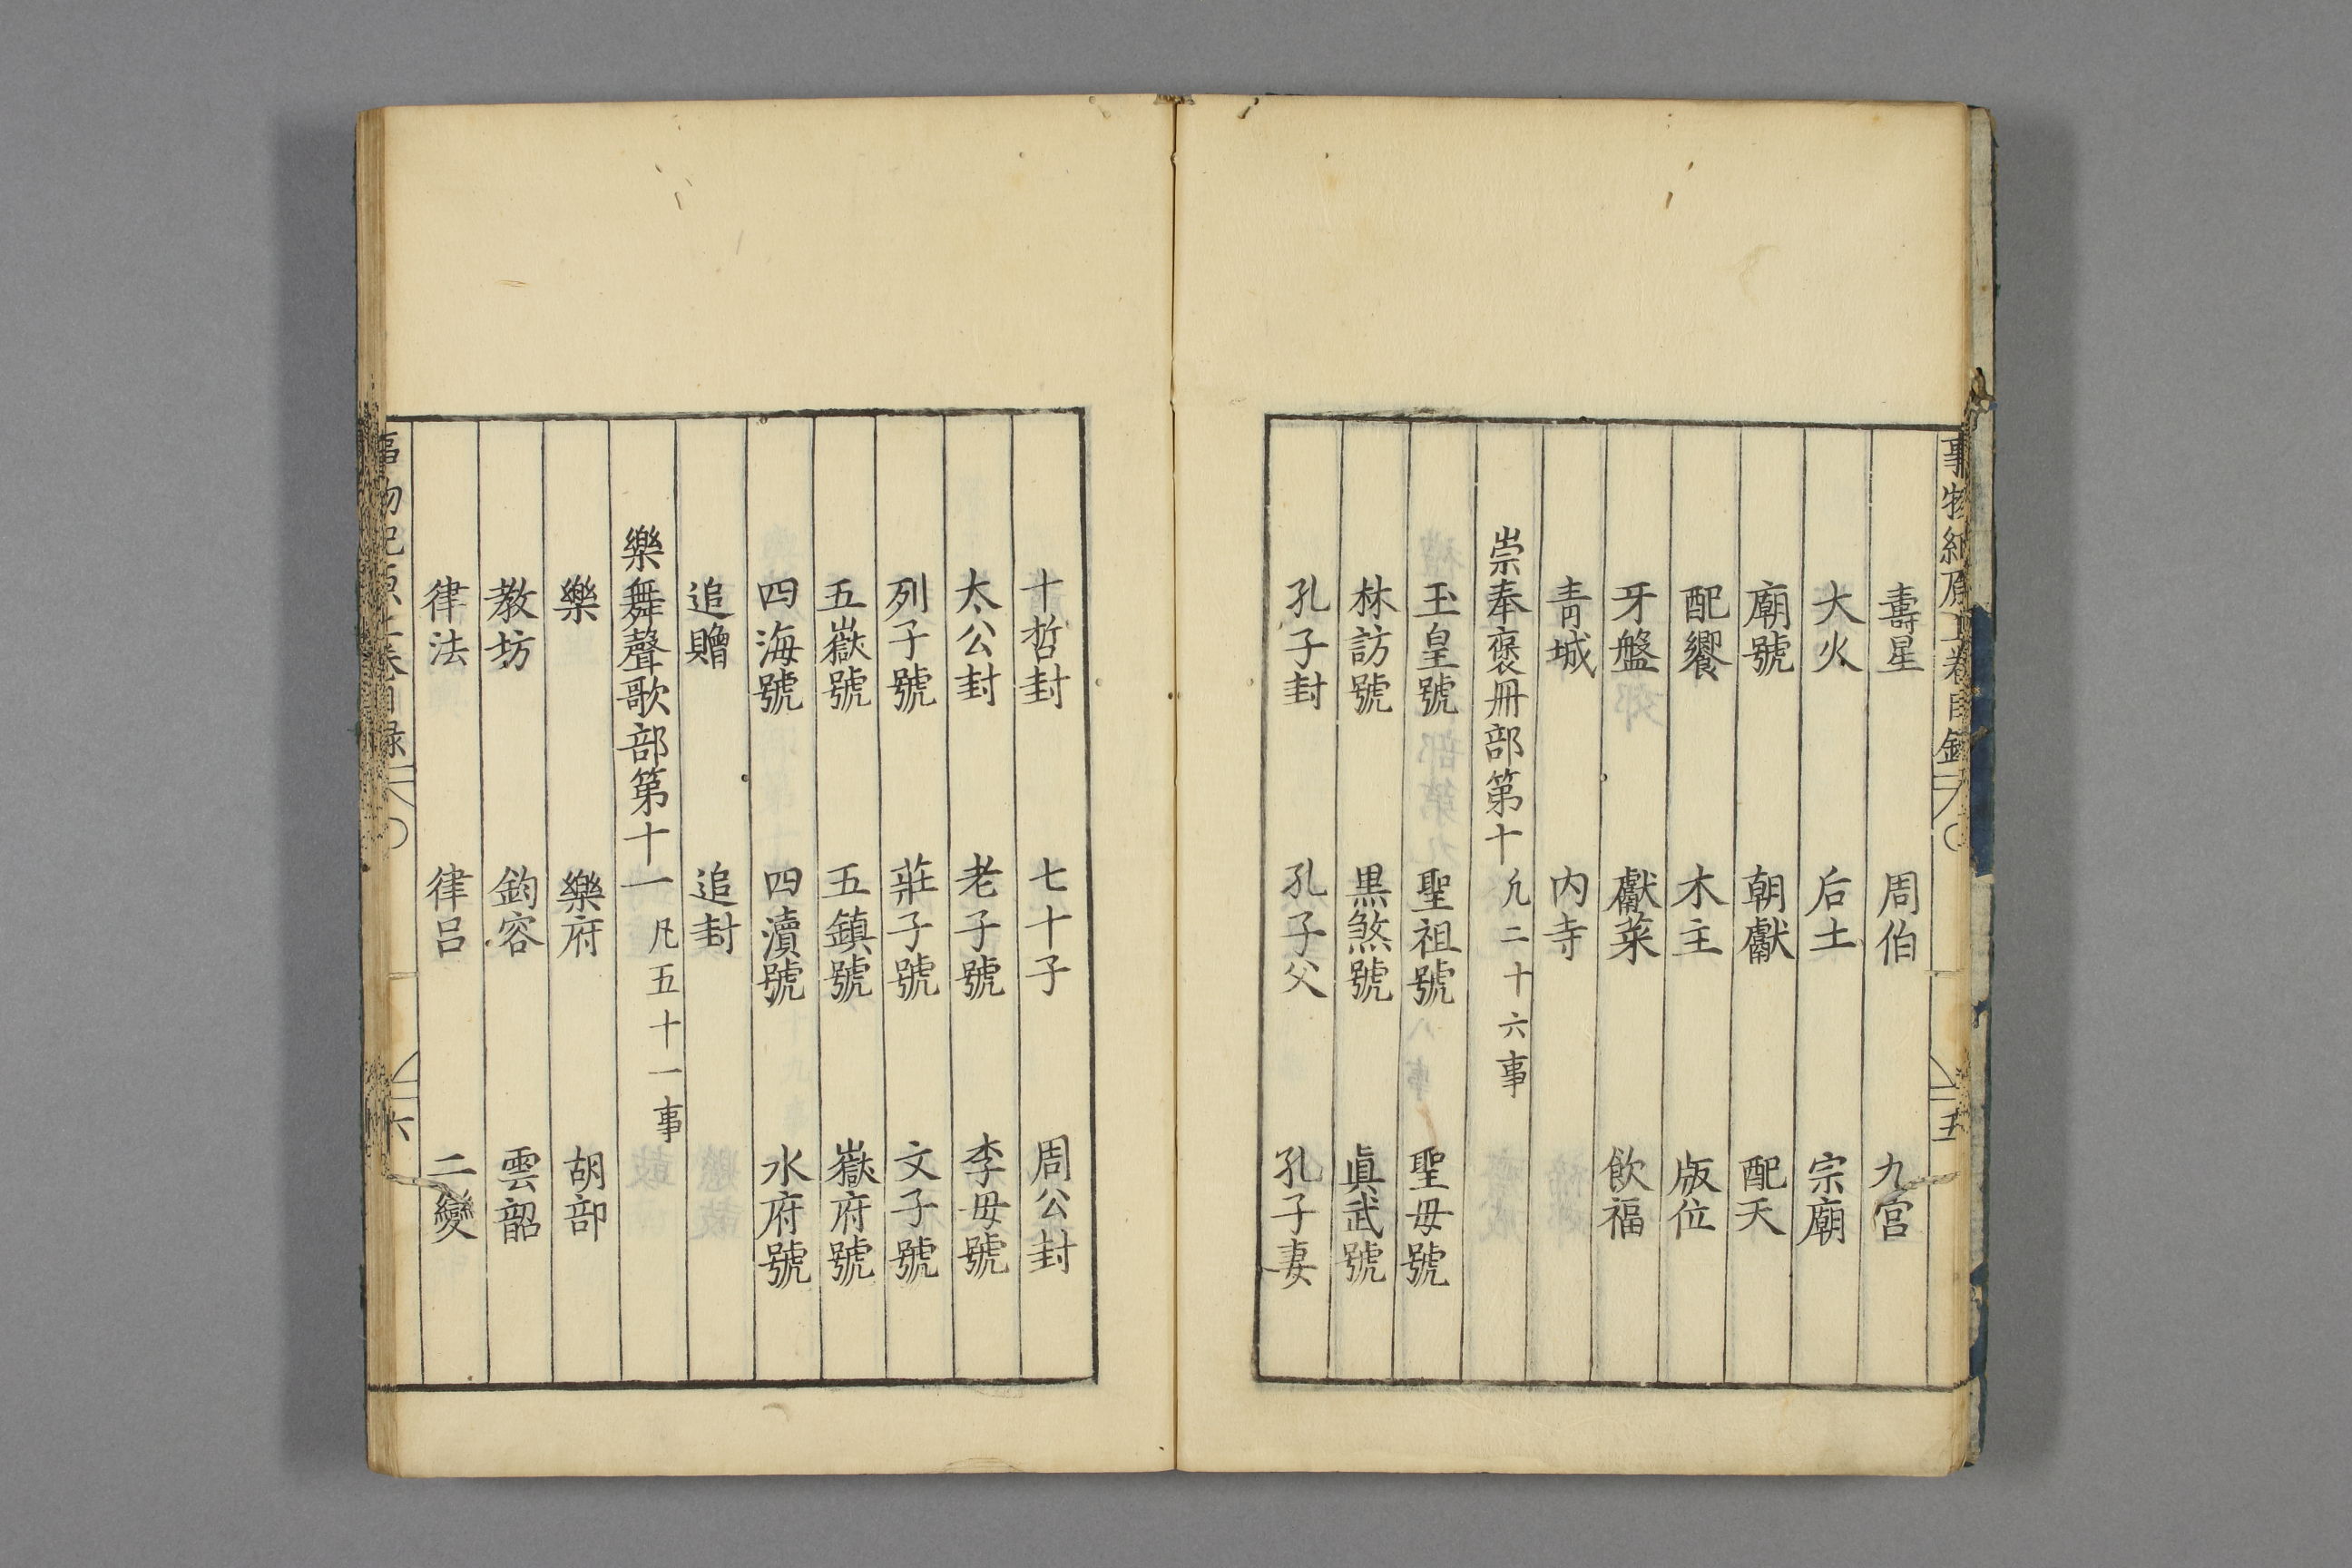 事物紀原上卷目錄 五
壽星 周伯 九宮
大火 后土 宗廟
廟號 朝獻 配天
配饗 木主 版位
牙盤 獻菜 飲福
青城 內寺
崇奉褒冊部第十 凢二十六事
玉皇號 聖祖號 聖毋號
林訪號 黒煞號 眞武號
孔子封 孔子父 孔子妻
十哲封 七十子 周公封
太公封 老子號 李毋號
列子號 莊子號 文子號
五嶽號 五鎮號 嶽府號
四海號 四瀆號 水府號
追贈 追封
樂舞聲歌部第十一 凡五十一事
樂 樂府 胡部
教坊 鈞容 雲韶
律法 律呂 二變
事物紀原上卷目録 六